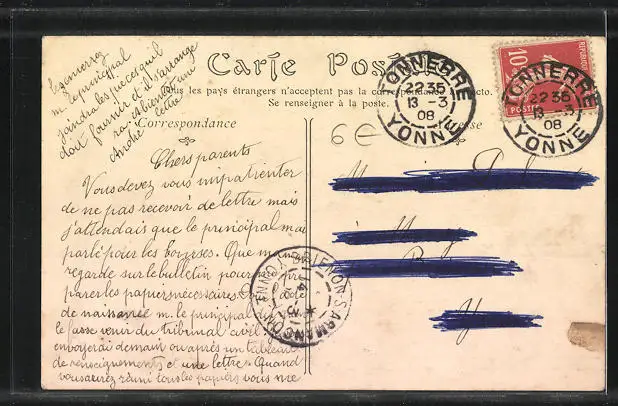 Carte Postale
Tous les pays étrangers n'acceptent pas la correspondance au recto.
Se renseigner à la poste.
Correspondance
Adresse
m. le principal
joindra les pièces qu'il
doit fournir et il s'arrange
ra
bientôt une
lettre
André
Chers parents
Vous devez vous impatienter
de ne pas recevoir de lettre mais
j'attendais que le principal m'ai
parlé pour les bourses. Que
regarde sur le bulletin pour
parer les papiers nécessaires.
de naissance m. le principal
le fasse venir du tribunal civil.
enverrai demain ou après un tableau
de renseignements et une lettre. Quand
vous aurez réuni tous les papiers vous me
6€
TONNERRE
22 35
13 - 3
08
YONNE
TONNERRE
22 35
13 - 3
08
YONNE
10
POSTES
BRIENON-S-ARMANÇON
YONNE